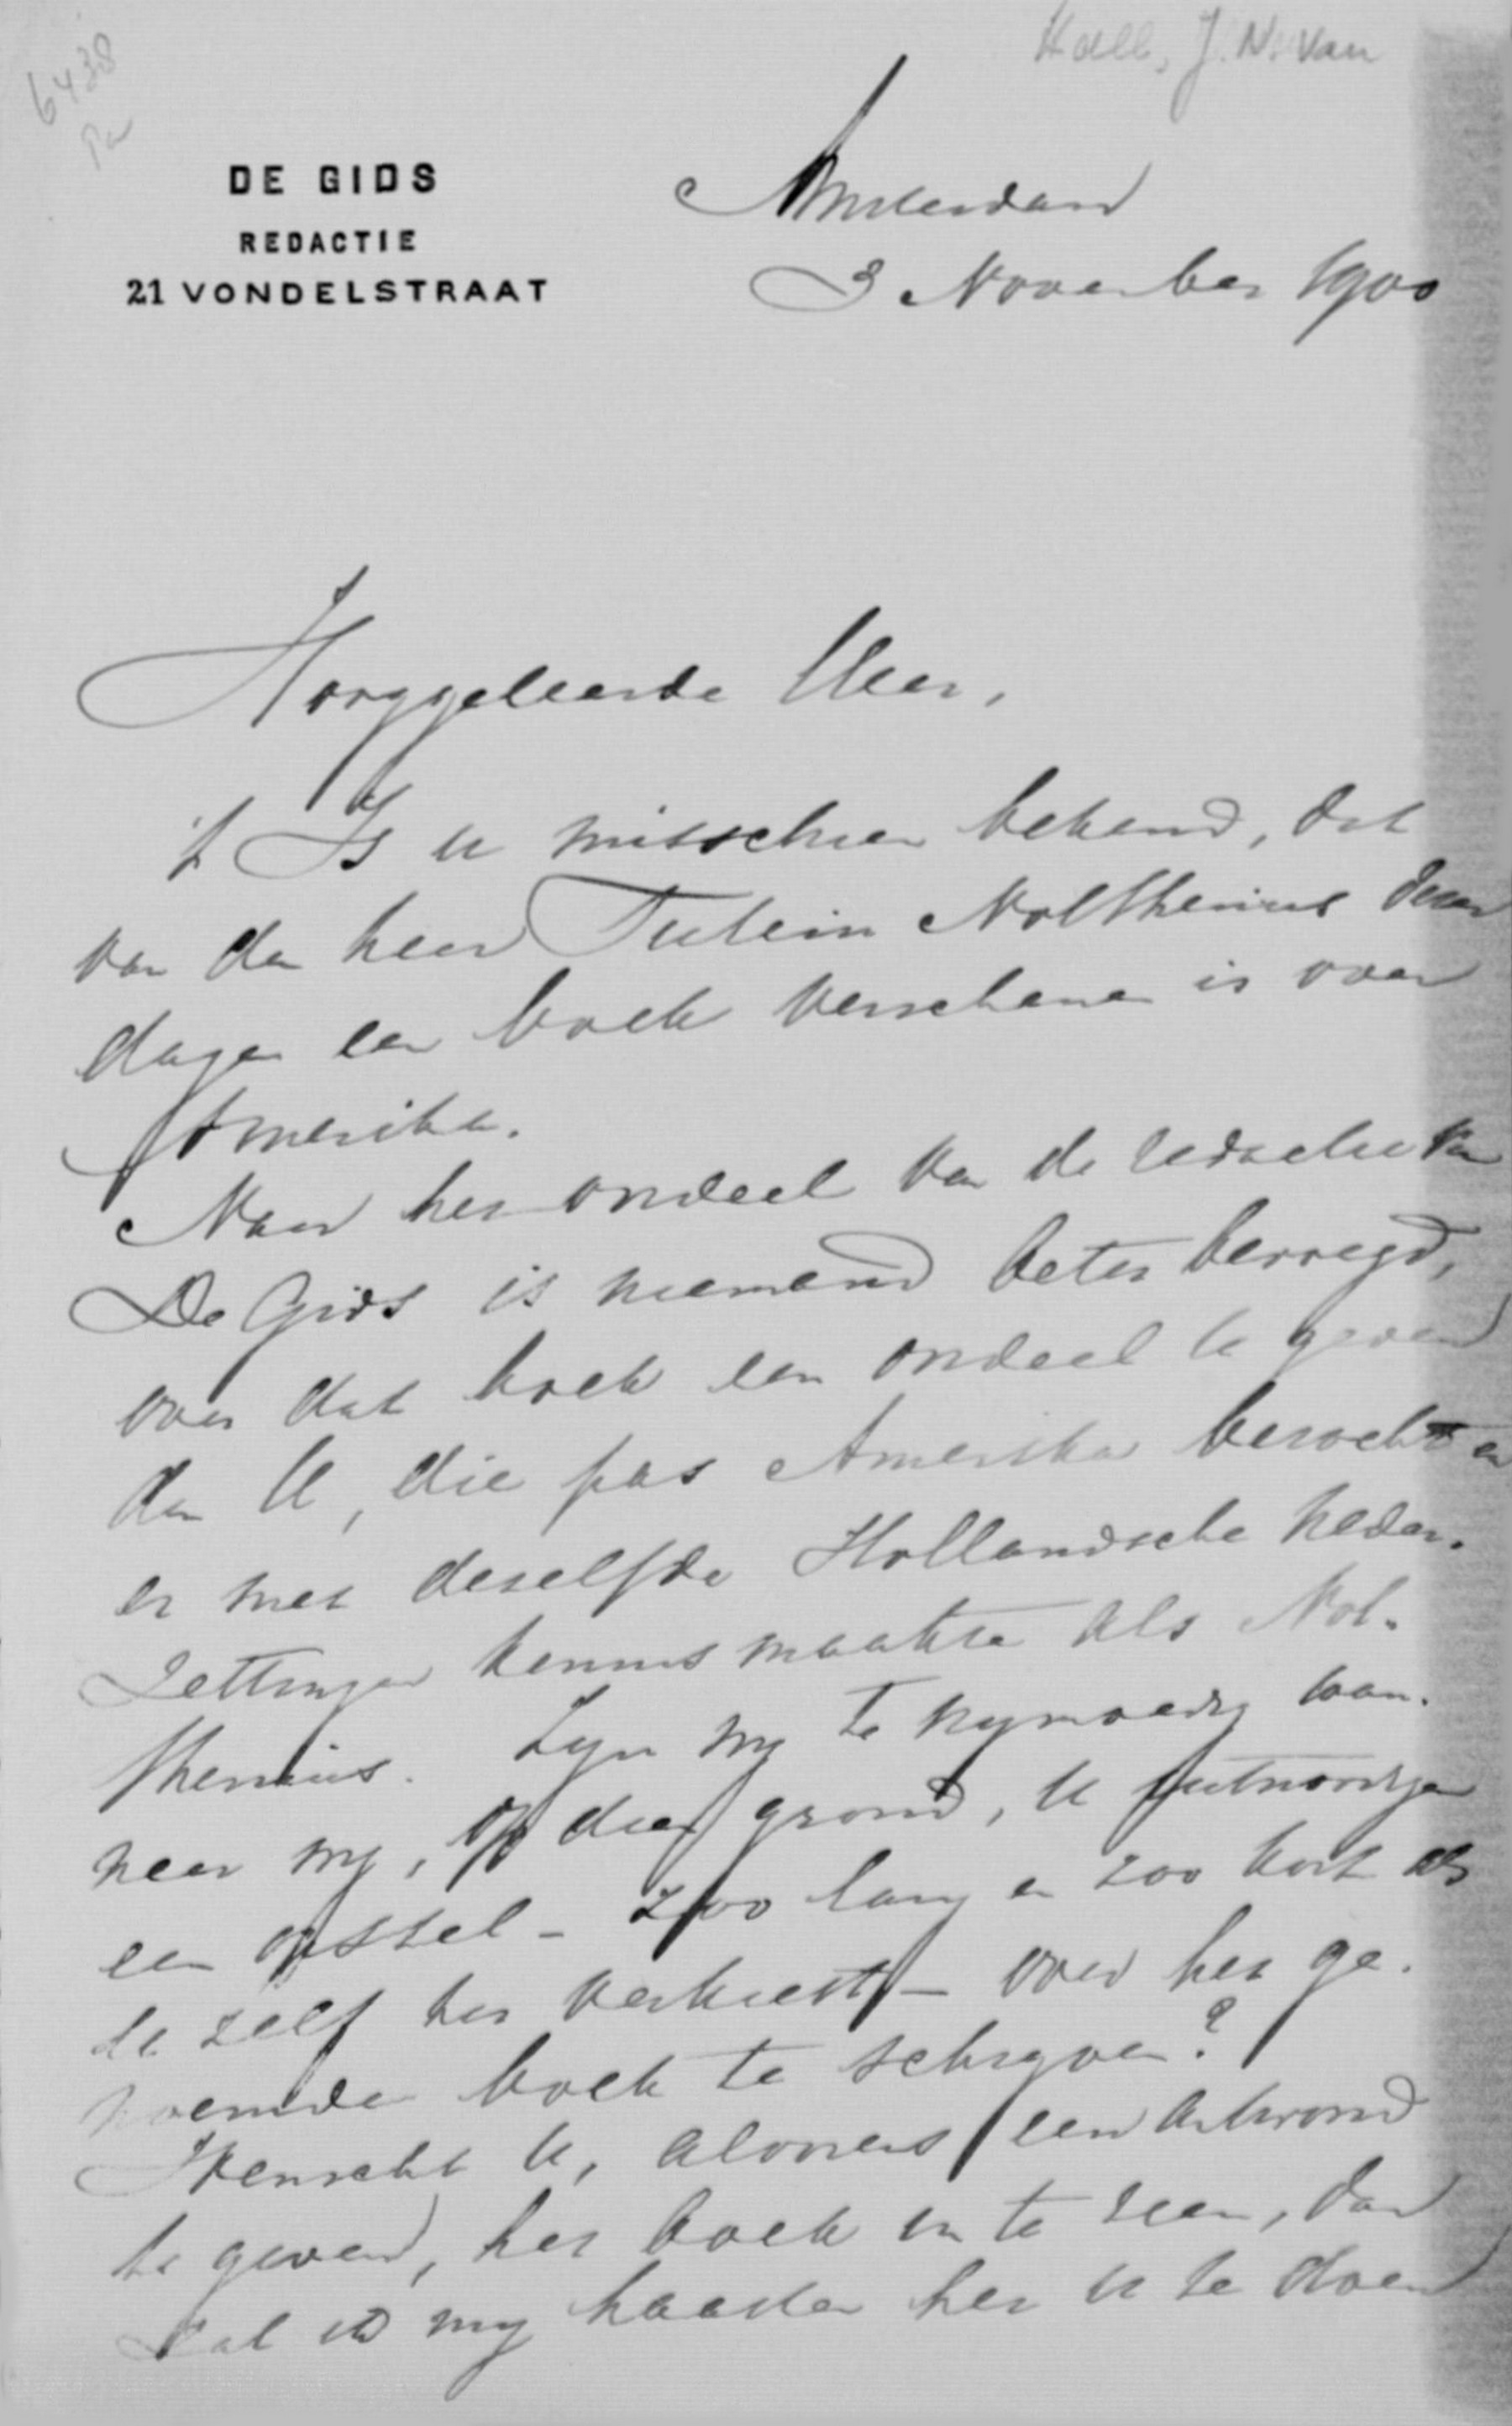 Hall, J. N. van
6438
Pa
DE GIDS
REDACTIE
21 VONDELSTRAAT
Amsterdam
3 November 1900
Hooggeleerde Heer,
't Is u misschien bekend, dat
van den heer Tutein Nolthenius dezer
dagen een boek verschenen is over
Amerika.
Naar het oordeel van de redactie van
De Gids is niemand beter bevoegd,
over dat boek een oordeel te geven
dan U, die pas Amerika bezocht en
er met dezelfde Hollandsche neder-
zettingen kennis maakte als Nol-
thenius. Zijn wij te vrijmoedig wan-
neer wij, op dien grond, U uitnoodigen
een opstel - zoo lang en zoo kort als
U zelf het verkiest - over het ge-
noemde boek te schrijven?
Wenscht U, alvorens een antwoord
te geven, het boek in te zien, dan
zal ik mij haasten het U te doen